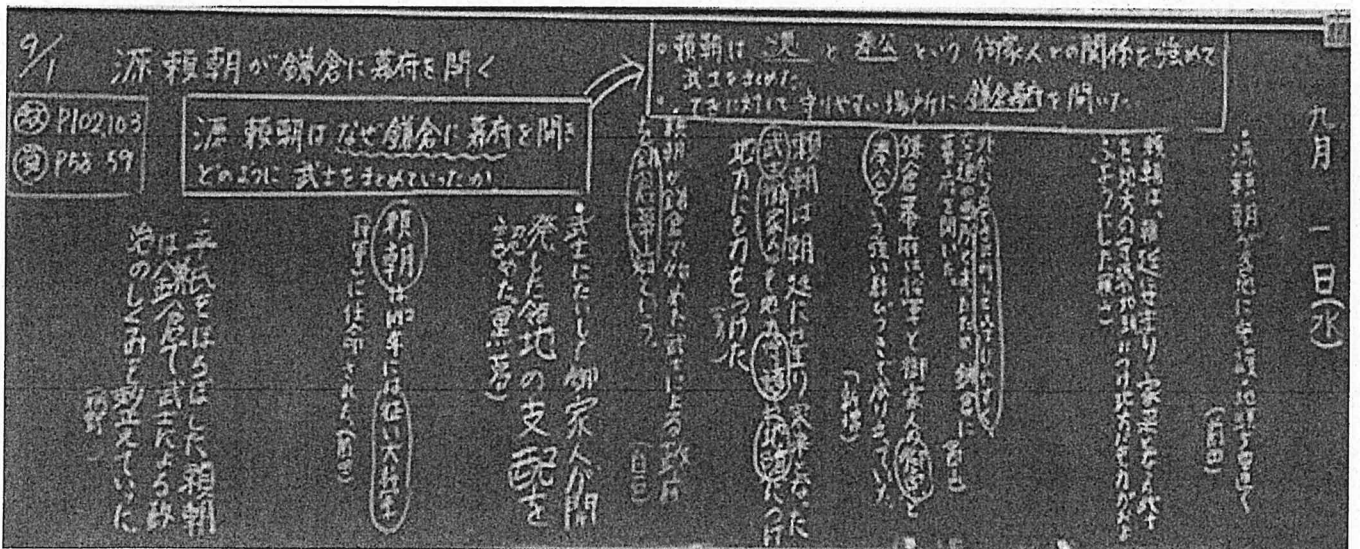 9/1
源頼朝が鎌倉に幕府を開く
教 P102,103
資 P58 59
源頼朝はなぜ鎌倉に幕府を開き
どのように武士をまとめていったか
。頼朝は ご恩 と 奉公 という御家人との関係を強めて
武士をまとめた。
。てきに対して守りやすい場所に鎌倉幕府を開いた。
九月 一日(水)
源頼朝が各地に守護・地頭を置いて
(前田)
頼朝は、朝廷にせまり家来となった武士
を地方の守護や地頭につけ地方にも力がおよ
ぶようにした
幕府を開いた。
鎌倉幕府は将軍と御家人の御恩と
奉公という強い結びつきで成り立っていた。
頼朝は朝廷にせまり家来になった
武士御家人を地方の守護や地頭につけ
地方にも力をつけた
頼朝が鎌倉で始めた武士による政府
を鎌倉幕府という。
・武士にたいして御家人が開
発した領地の支配を
認めた
頼朝は1192年には征い大将軍
(将軍)に任命された(前田)
平氏をほろぼした頼朝
は鎌倉で武士による政
治のしくみを整えていった。